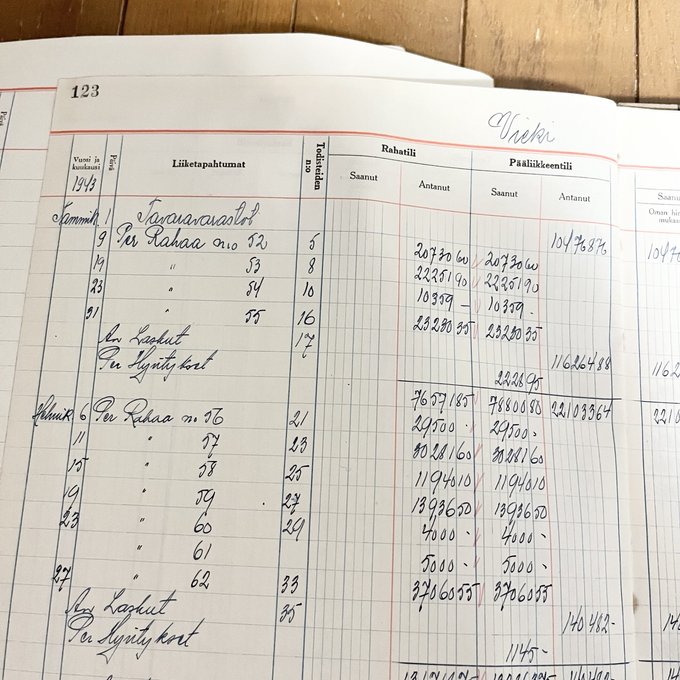 123
Vicki
Päivä
Vuosi ja kuukausi
Päivä
Liiketapahtumat
Todisteiden n:o
Rahatili
Pääliikkeentili
Saanut Antanut Saanut Antanut
Saanut
Oman hin
mukaa
1943
Tammik 1 Tavaravarastot 10476876 1047
9 Per Rahaa n:o 52 5 2073060 2073060
19 " 53 8 2225190 2225190
23 " 54 10 10359 - 10359 -
31 " 55 16 2323035 2323035
An Laskut 17 11626488 1162
Per Hyvitykset 222895
7657185 7880080 22103364 2210
Helmik 6 Per Rahaa no 56 21 29500 - 29500 -
11 " 57 23 3028160 3028160
15 " 58 25 1194010 1194010
19 " 59 27 1393650 1393650
23 " 60 29 4000 - 4000 -
" 61 5000 - 5000 -
27 " 62 33 3706055 3706055
An Laskut 35 140482 - 140
Per Hyvitykset 1145 -